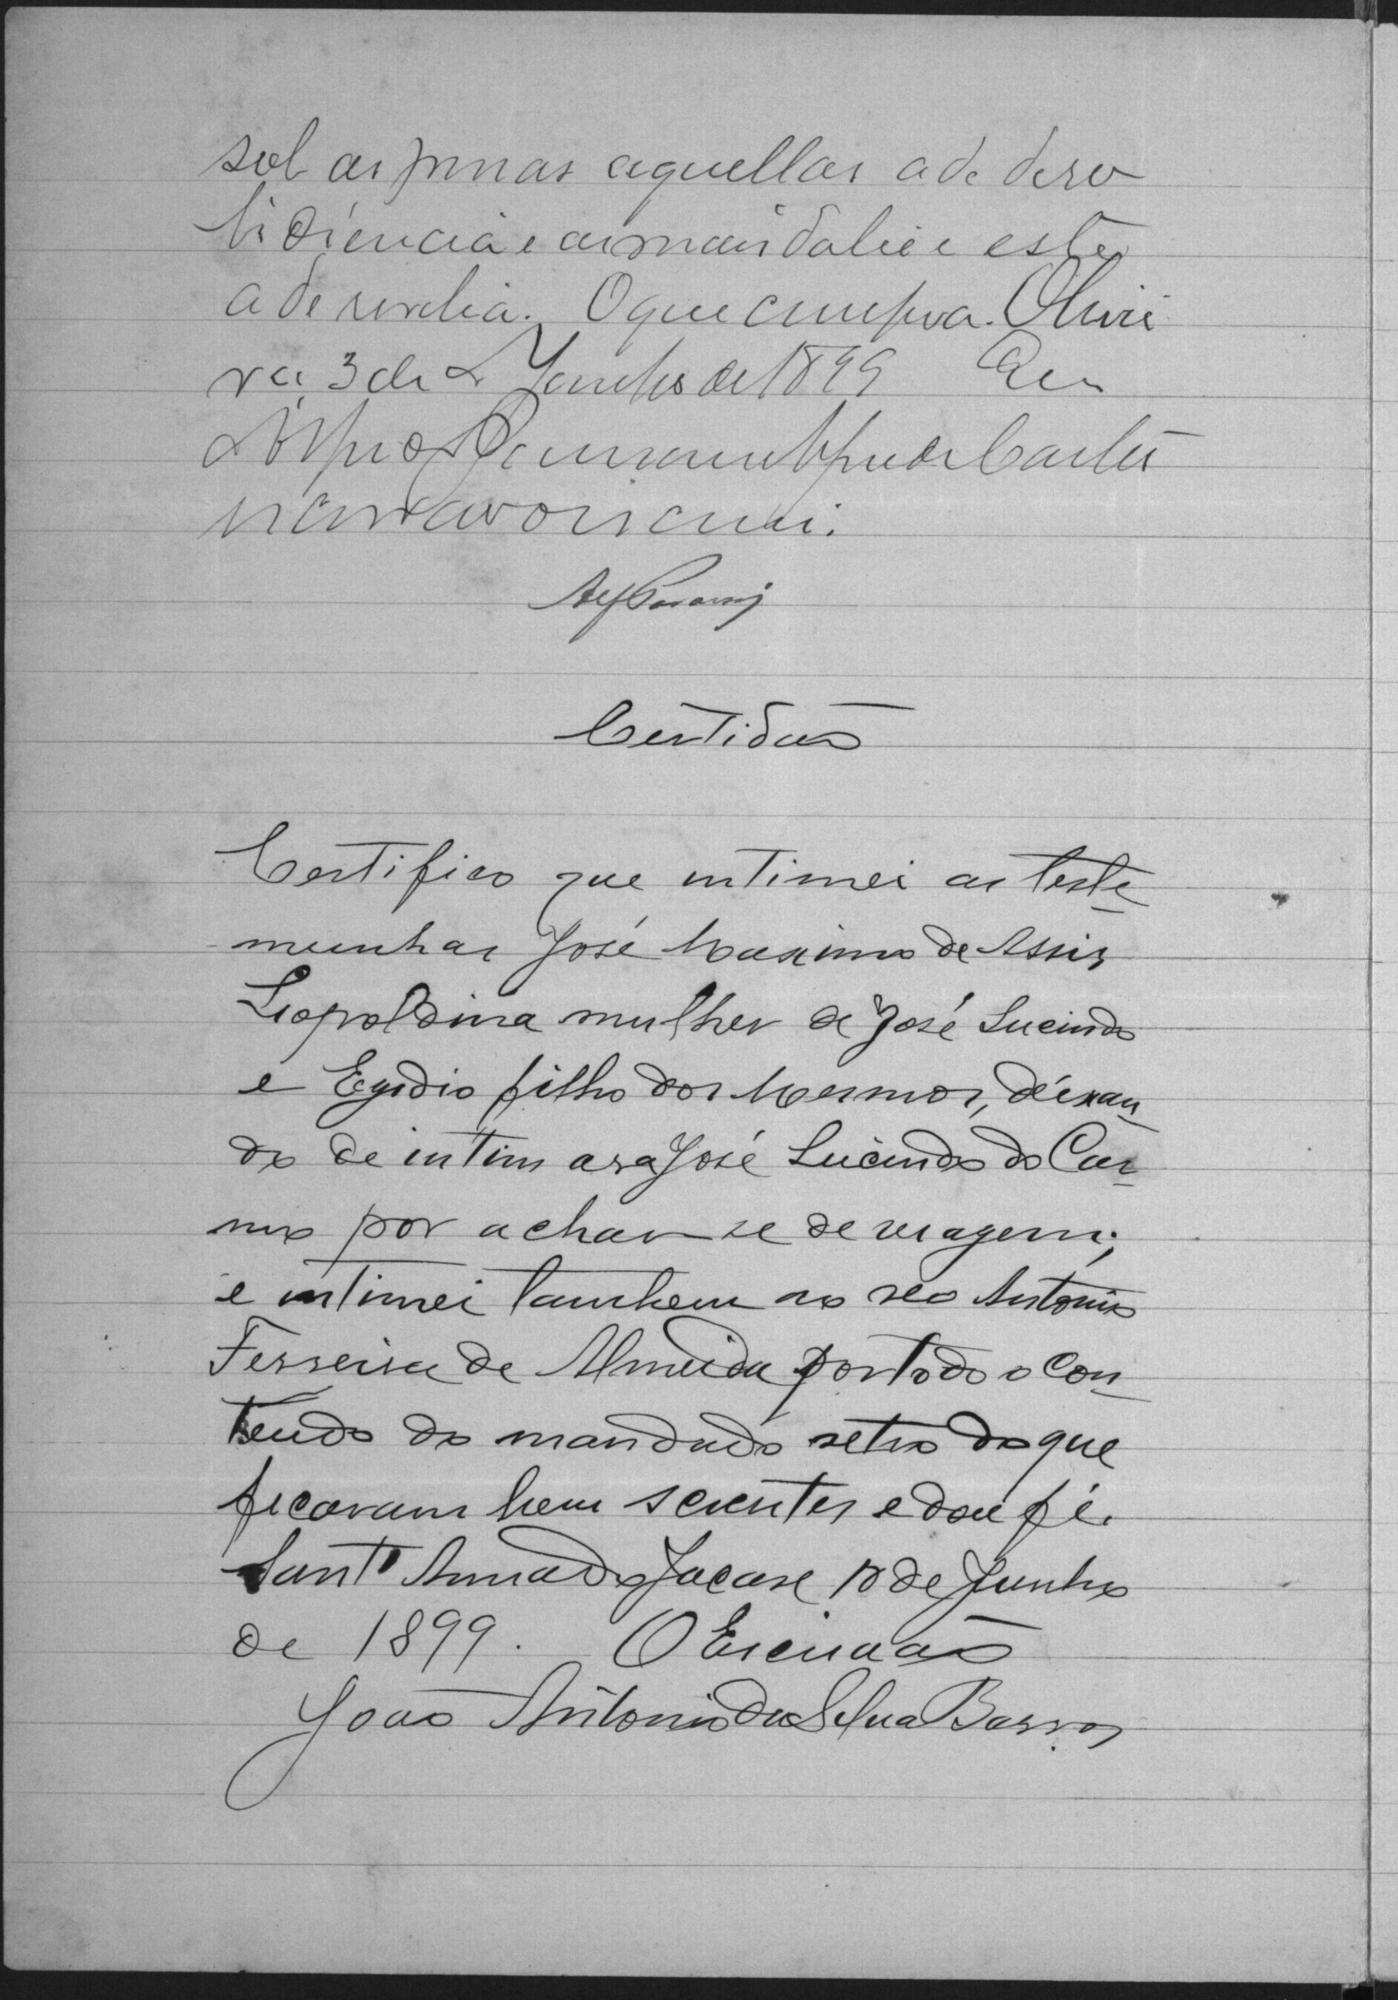 sob as penas aquellas a de deso
bidiencia e as mais da lei e este
a de revelia. O que cumpra. Olivei
ra, 3 de Junho de 1899 Eu
de Castro
escrivão o escrevi.
Certidão
Certifico que intimei as teste
munhas José Maximo de Assis
Liopoldina mulher de José Lucindo
e Egidio filho dos Mesmos, deixan
do de intimar a José Lucindo do Car
mo por achar se de viagem;
e intimei tambem ao reo Antonio
Ferreira de Almeida por todo o con
teudo do mandado retro do que
ficaram bem scientes e dou fé.
Sant'Anna do Jacare 10 de Junho
de 1899. O Escrivão
João Antonio da Silva Barros